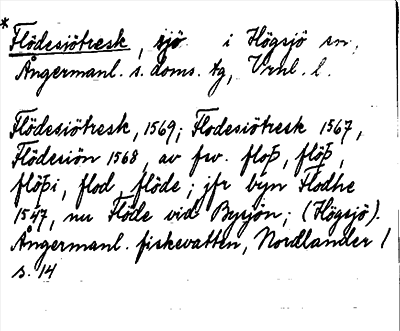 * Flödesjötresk, sjö i Högsjö sn,
Ångermanl. s. doms. tg, Vrnl. l.
Flödesiötresk, 1569; Flodesiötresk 1567,
Flödesiön 1568, av fsv. floþ, flöþ,
flöþi, flod, flöde; jfr byn Flodhe
1547, nu Flöde vid Bysjön; (Högsjö).
Ångermanl. fiskevatten, Nordlander 1
s. 14